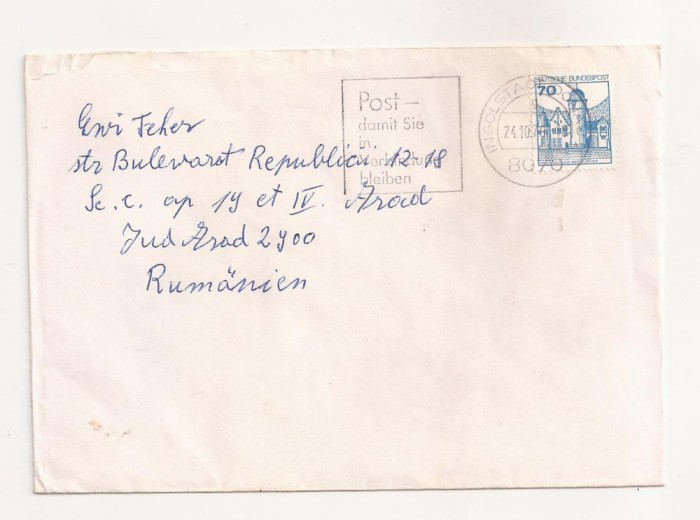 Post –
damit Sie
in
Verbindung
bleiben
INGOLSTADT
24.10.
8070
70
DEUTSCHE BUNDESPOST
Feher
str Bulevardt Republicii 12-18
Sc. c. ap 19 et IV. Arad
Jud Arad 2900
Rumänien